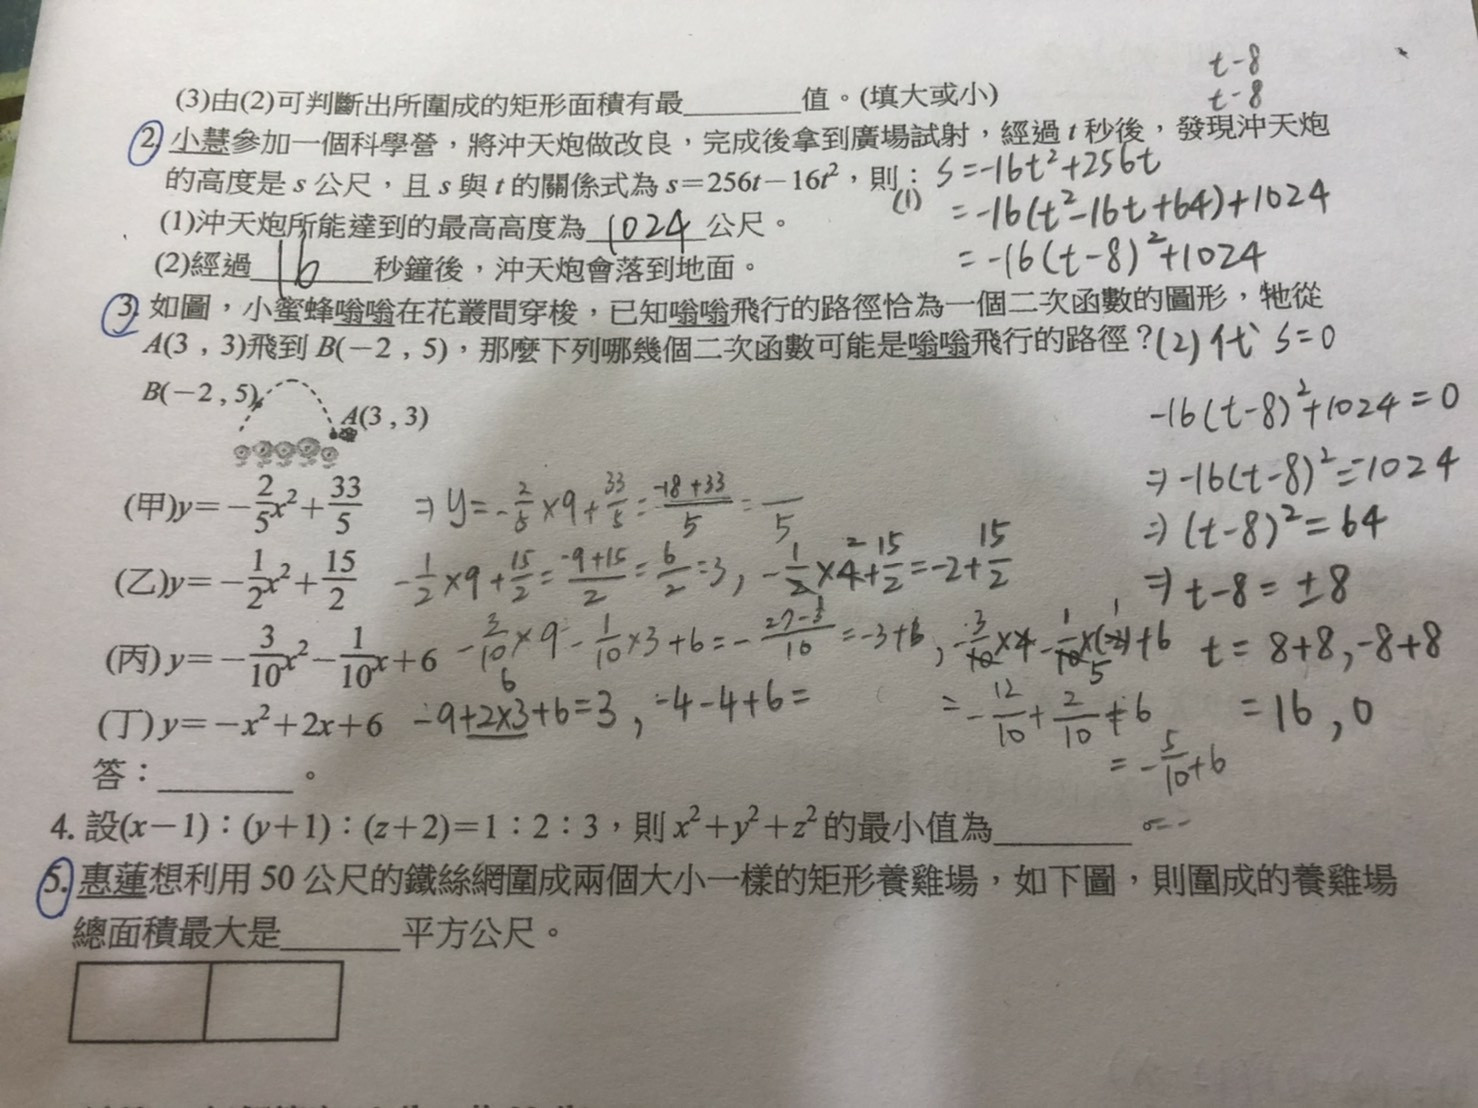 t-8
t-8
(3)由(2)可判斷出所圍成的矩形面積有最______值。(填大或小)
2. 小慧參加一個科學營,將沖天炮做改良,完成後拿到廣場試射,經過 t 秒後,發現沖天炮
的高度是 s 公尺,且 s 與 t 的關係式為 s=256t-16t²,則:
S=-16t²+256t
(1) =-16(t²-16t+64)+1024
=-16(t-8)²+1024
(1)沖天炮所能達到的最高高度為 1024 公尺。
(2)經過 16 秒鐘後,沖天炮會落到地面。
3. 如圖,小蜜蜂嗡嗡在花叢間穿梭,已知嗡嗡飛行的路徑恰為一個二次函數的圖形,牠從
A(3,3)飛到 B(-2,5),那麼下列哪幾個二次函數可能是嗡嗡飛行的路徑?
(2) 代 S=0
-16(t-8)²+1024=0
⇒ -16(t-8)²=-1024
⇒ (t-8)²=64
⇒ t-8=±8
t=8+8,-8+8
=16,0
B(-2,5)
A(3,3)
(甲)y=-2/5x²+33/5 ⇒ y=-2/5×9+33/5=-18+33/5=/5
(乙)y=-1/2x²+15/2 -1/2×9+15/2=-9+15/2=6/2=3, -1/2×4+15/2=-2+15/2
(丙)y=-3/10x²-1/10x+6 -3/10×9-1/10×3+6=-27-3/10=-3+6, -3/10×4-1/10×(-2)+6
=-12/10+2/10+6
=-5/10+6
(丁)y=-x²+2x+6 -9+2×3+6=3, -4-4+6=
答:______。
4. 設(x-1):(y+1):(z+2)=1:2:3,則 x²+y²+z² 的最小值為______
5. 惠蓮想利用 50 公尺的鐵絲網圍成兩個大小一樣的矩形養雞場,如下圖,則圍成的養雞場
總面積最大是______平方公尺。